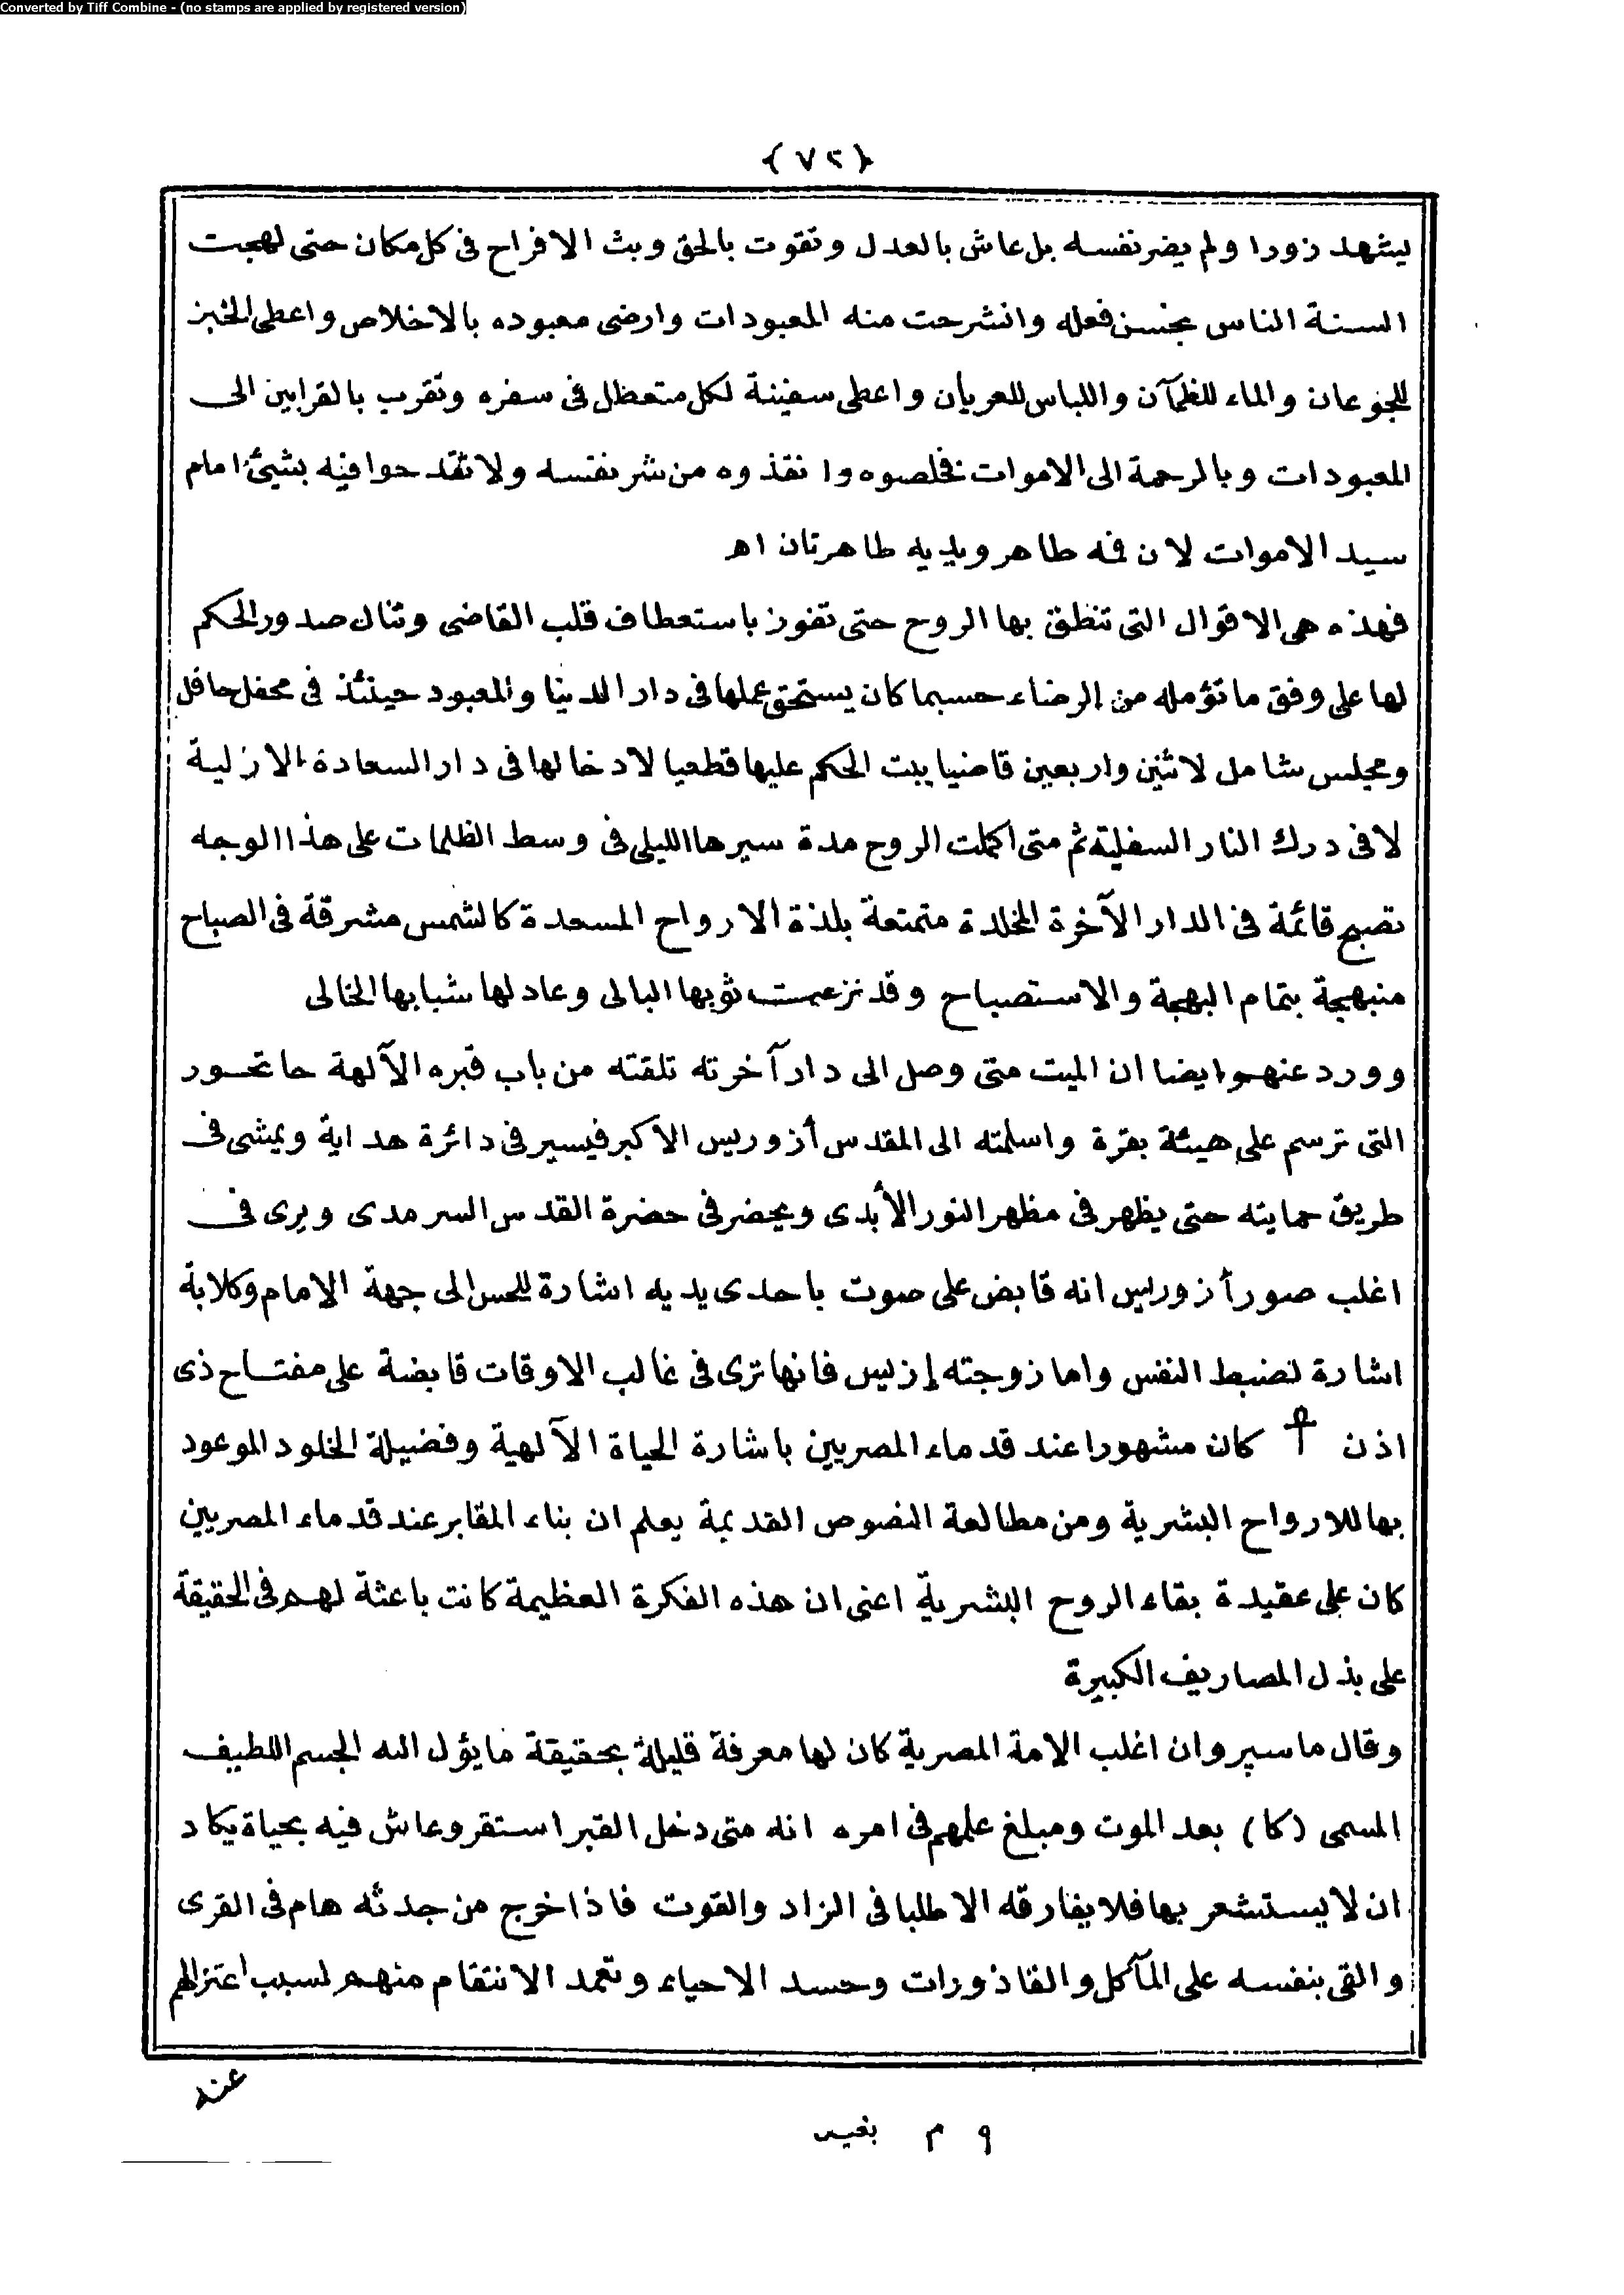 Converted by Tiff Combine - (no stamps are applied by registered version)
{٧٢}
ليشهد زورا ولم يضر نفسه بل عاش بالعدل وتقوت بالحق وبث الافراح فى كل مكان حتى لهجت
السنة الناس بحسن فعله وانشرحت منه المعبودات وارضى معبوده بالاخلاص واعطى الخبز
للجوعان والماء للظمآن واللباس للعريان واعطى سفينة لكل متعطل فى سفره وتقرب بالقرابين الى
المعبودات وبالرحمة الى الاموات فخلصوه وانقذوه من شر نفسه ولا تقدحوا فيه بشيئ امام
سيد الاموات لان فمه طاهر ويديه طاهرتان اهـ
فهذه هى الاقوال التى تنطق بها الروح حتى تفوز باستعطاف قلب القاضى وتنال صدور الحكم
لها على وفق ما تؤمله من الرضاء حسبما كان يستحق عملها فى دار الدنيا والمعبود حينئذ فى محفل حافل
ومجلس شامل لاثنين واربعين قاضيا يبت الحكم عليها قطعيا لادخالها فى دار السعادة الازلية
لا فى درك النار السفلية ثم متى اكملت الروح مدة سيرها الليلى فى وسط الظلمات على هذا الوجه
تصبح قائمة فى الدار الآخرة المخلدة متمتعة بلذة الارواح المسعدة كالشمس مشرقة فى الصباح
منبهجة بتمام البهجة والاستصباح وقد نزعت ثوبها البالى وعاد لها شبابها الخالى
وورد عنهم ايضا ان الميت متى وصل الى دار آخرته تلقته من باب قبره الآلهة حاتحور
التى ترسم على هيئة بقرة واسلمته الى المقدس أزوريس الاكبر فيسير فى دائرة هداية ويمشى فى
طريق حمايته حتى يظهر فى مظهر النور الأبدى ويحضر فى حضرة القدس السرمدى ويرى فى
اغلب صور أزوريس انه قابض على صوت باحدى يديه اشارة للحس الى جهة الامام وكلابة
اشارة لضبط النفس واما زوجته إزيس فانها ترى فى غالب الاوقات قابضة على مفتاح ذى
اذن ☥ كان مشهورا عند قدماء المصريين باشارة الحياة الآلهية وفضيلة الخلود الموعود
بها للارواح البشرية ومن مطالعة النصوص القديمة يعلم ان بناء المقابر عند قدماء المصريين
كان على عقيدة بقاء الروح البشرية اعنى ان هذه الفكرة العظيمة كانت باعثة لهم فى الحقيقة
على بذل المصاريف الكبيرة
وقال ماسپرو ان اغلب الامة المصرية كان لها معرفة قليلة بحقيقة ما يؤل اليه الجسم اللطيف
المسمى (كا) بعد الموت ومبلغ علمهم فى امره انه متى دخل القبر استقر وعاش فيه بحياة يكاد
ان لا يستشعر بها فلا يفارقه الا طلبا فى الزاد والقوت فاذا خرج من جدثه هام فى القرى
والقى بنفسه على المآكل والقاذورات وحسد الاحياء وتعمد الانتقام منهم لسبب اعتزالهم
عنه
٩ م بغيـ